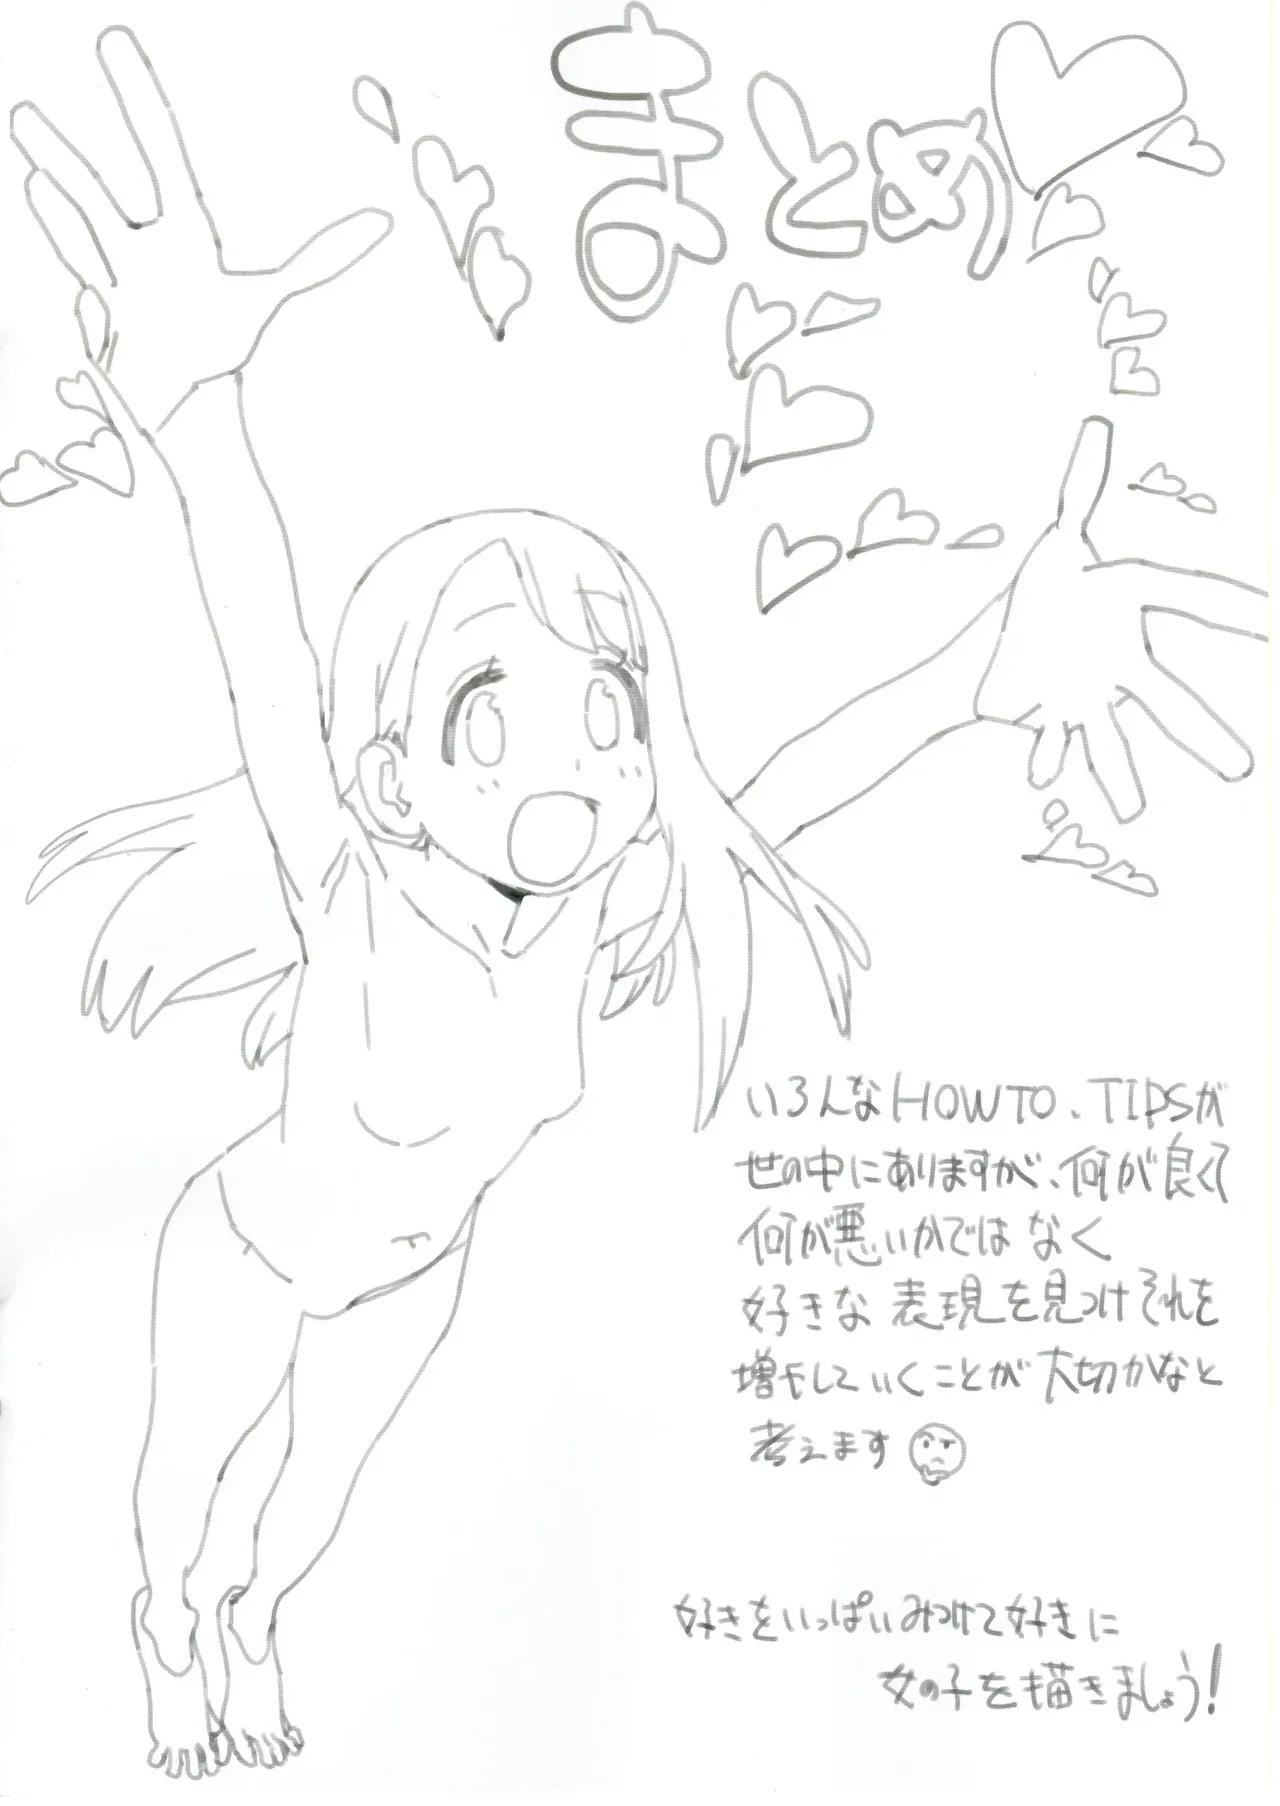 まとめ
いろんなHOWTO、TIPSが
世の中にありますが、何が良くて
何が悪いかではなく
好きな表現を見つけそれを
増やしていくことが大切かなと
考えます
好きをいっぱいみつけて好きに
女の子を描きましょう!